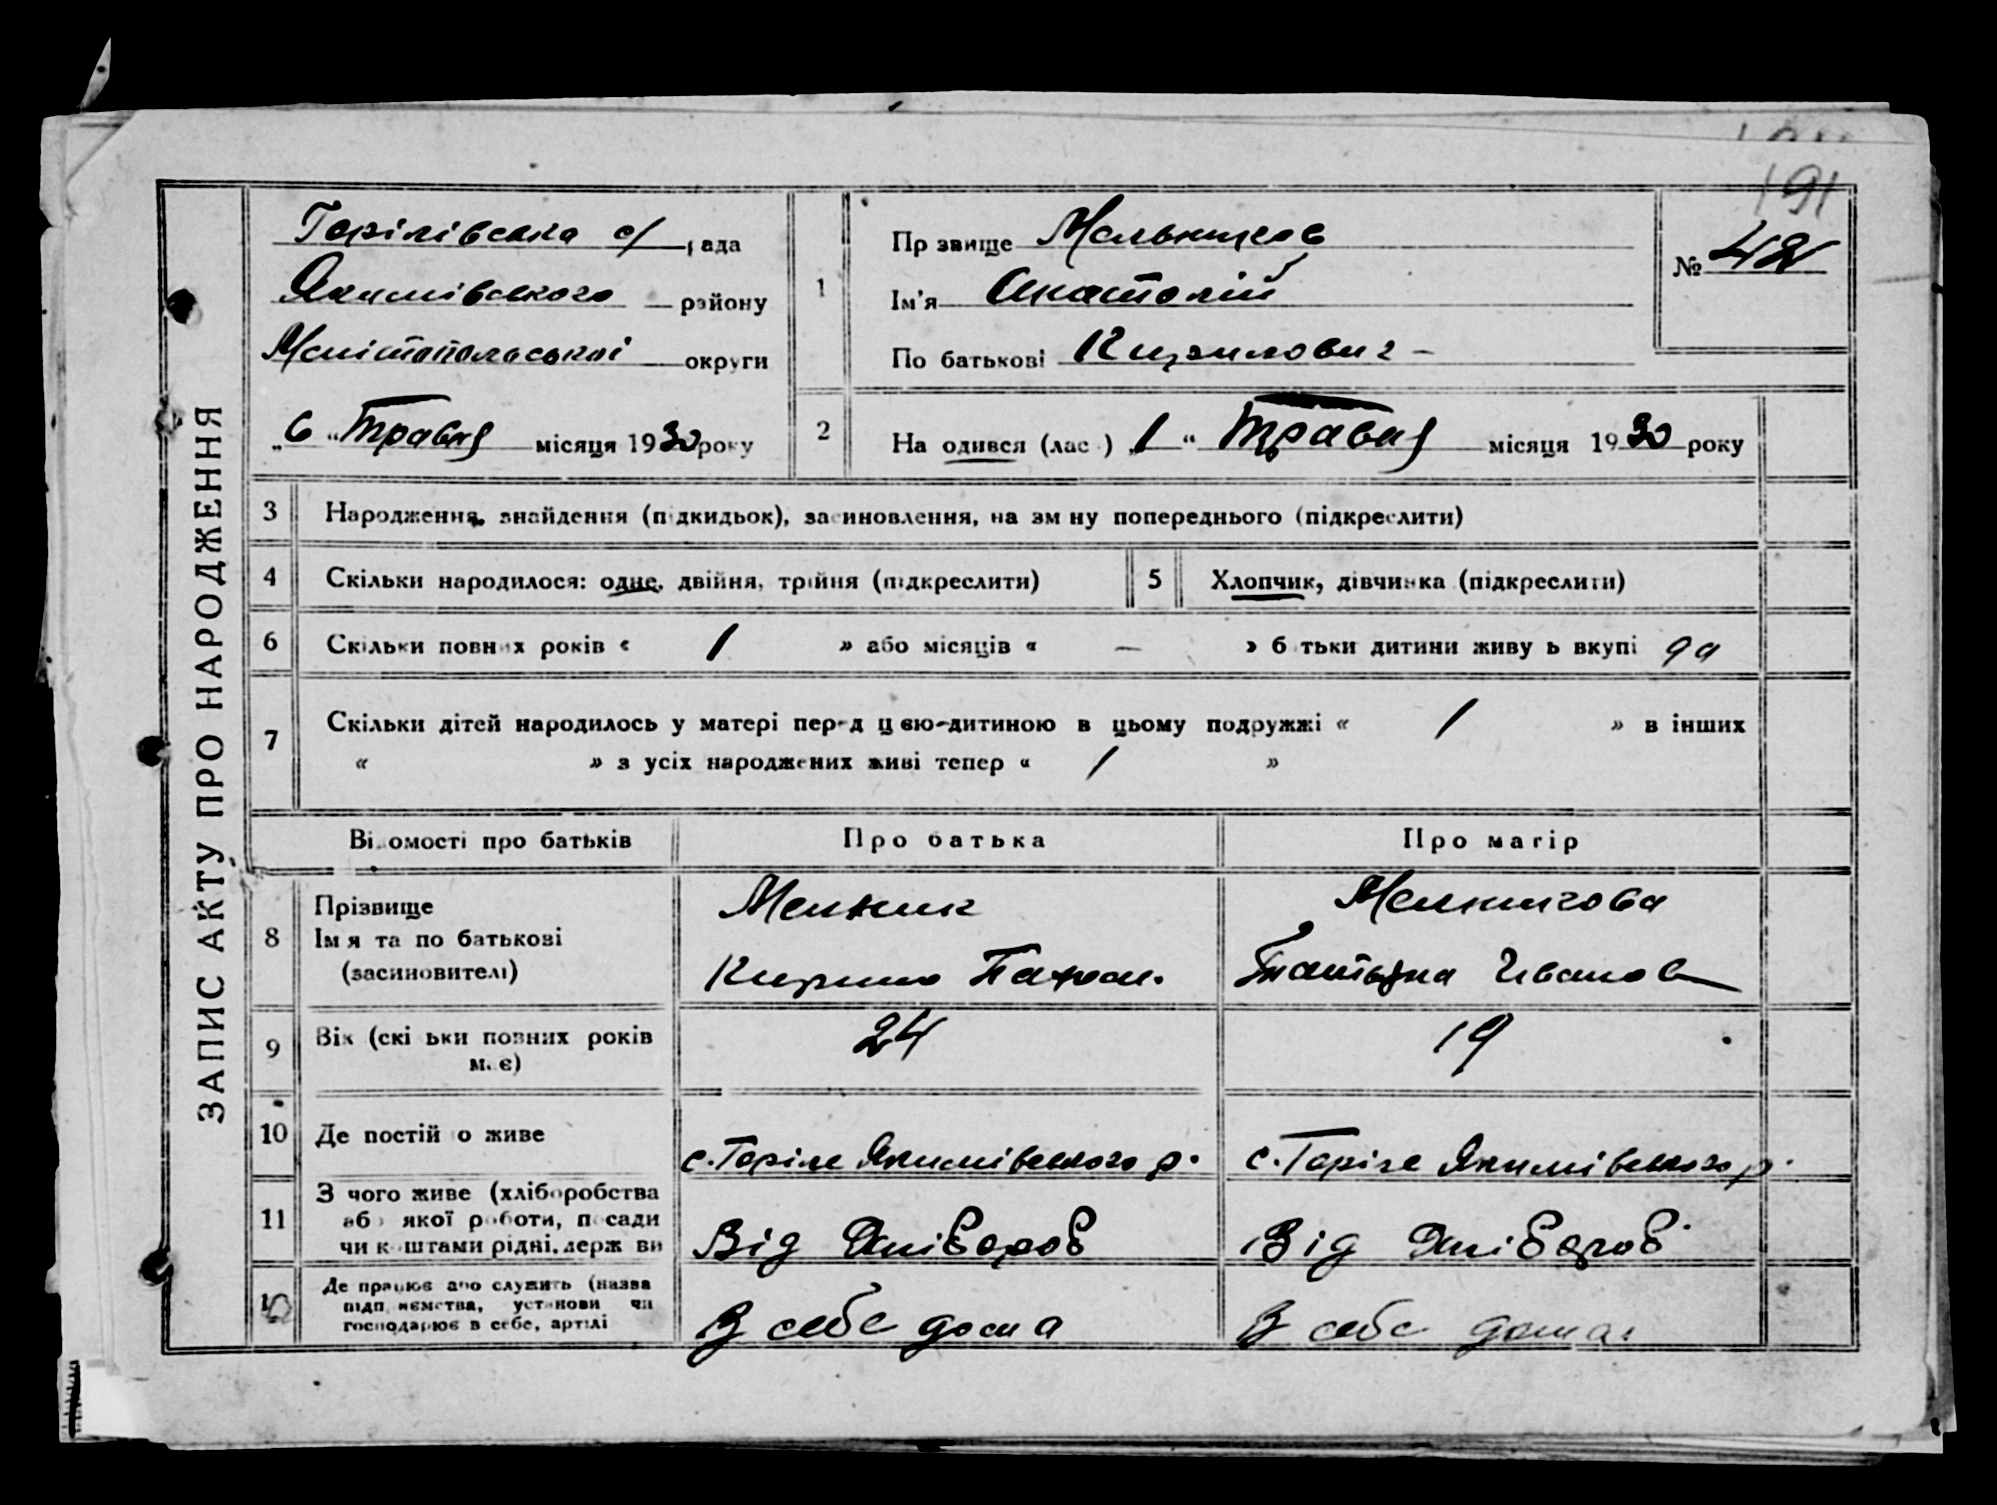 191
Горілівська с/ рада
Якимівського району
Мелітопольської округи
„6 “ Травня місяця 1930 року
1
Прзвище Мельников
Ім'я Анатолій
По батькові Кирилович -
№ 42
2
На одився (лас ) „1 “ Травня місяця 1930 року
ЗАПИС АКТУ ПРО НАРОДЖЕННЯ
3 Народження, знайдення (підкидьок), засиновлення, на зм ну попереднього (підкреслити)
4 Скільки народилося: одне, двійня, трійня (підкреслити) 5 Хлопчик, дівчинка (підкреслити)
6 Скільки повних років « 1 » або місяців « — » б тьки дитини живу ь вкупі да
7 Скільки дітей народилось у матері перед цією-дитиною в цьому подружжі « 1 » в інших
« » з усіх народжених живі тепер « 1 »
Ві омості про батьків Про батька Про матір
8 Прізвище
Ім я та по батькові
(засиновителі)
Мелник
Кирило Пахом.
Мелникова
Татьяна Иванов
9 Вік (скі ьки повних років
м є)
24 19
10 Де постій о живе с. Горіле Якимівського р. с. Горіле Якимівського р.
11 З чого живе (хліборобства
або якої роботи, посади
чи коштами рідні, держ ви
Від
Від
Де працює або служить (назва
підп иємства, установи чи
господарює в себе, артілі
В себе дома В себе дома